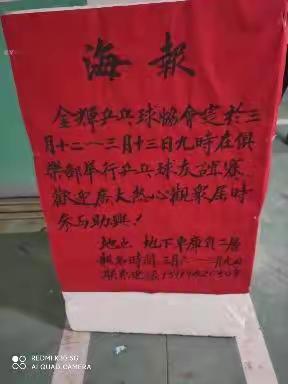 海報
金輝乒乓球協會定於三
月十二一三月十三日九時在俱
樂部舉行乒乓球友誼賽
歡迎廣大熱心觀衆屆時
参与助興!
地点 地下車庫負二層
報名時間 三月六一三月九日
REDMI 10X 5G
AI QUAD CAMERA